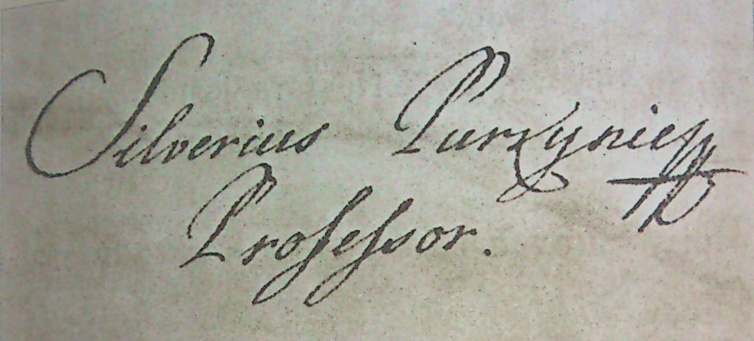 Silverius Purzynies
Profeſsor.